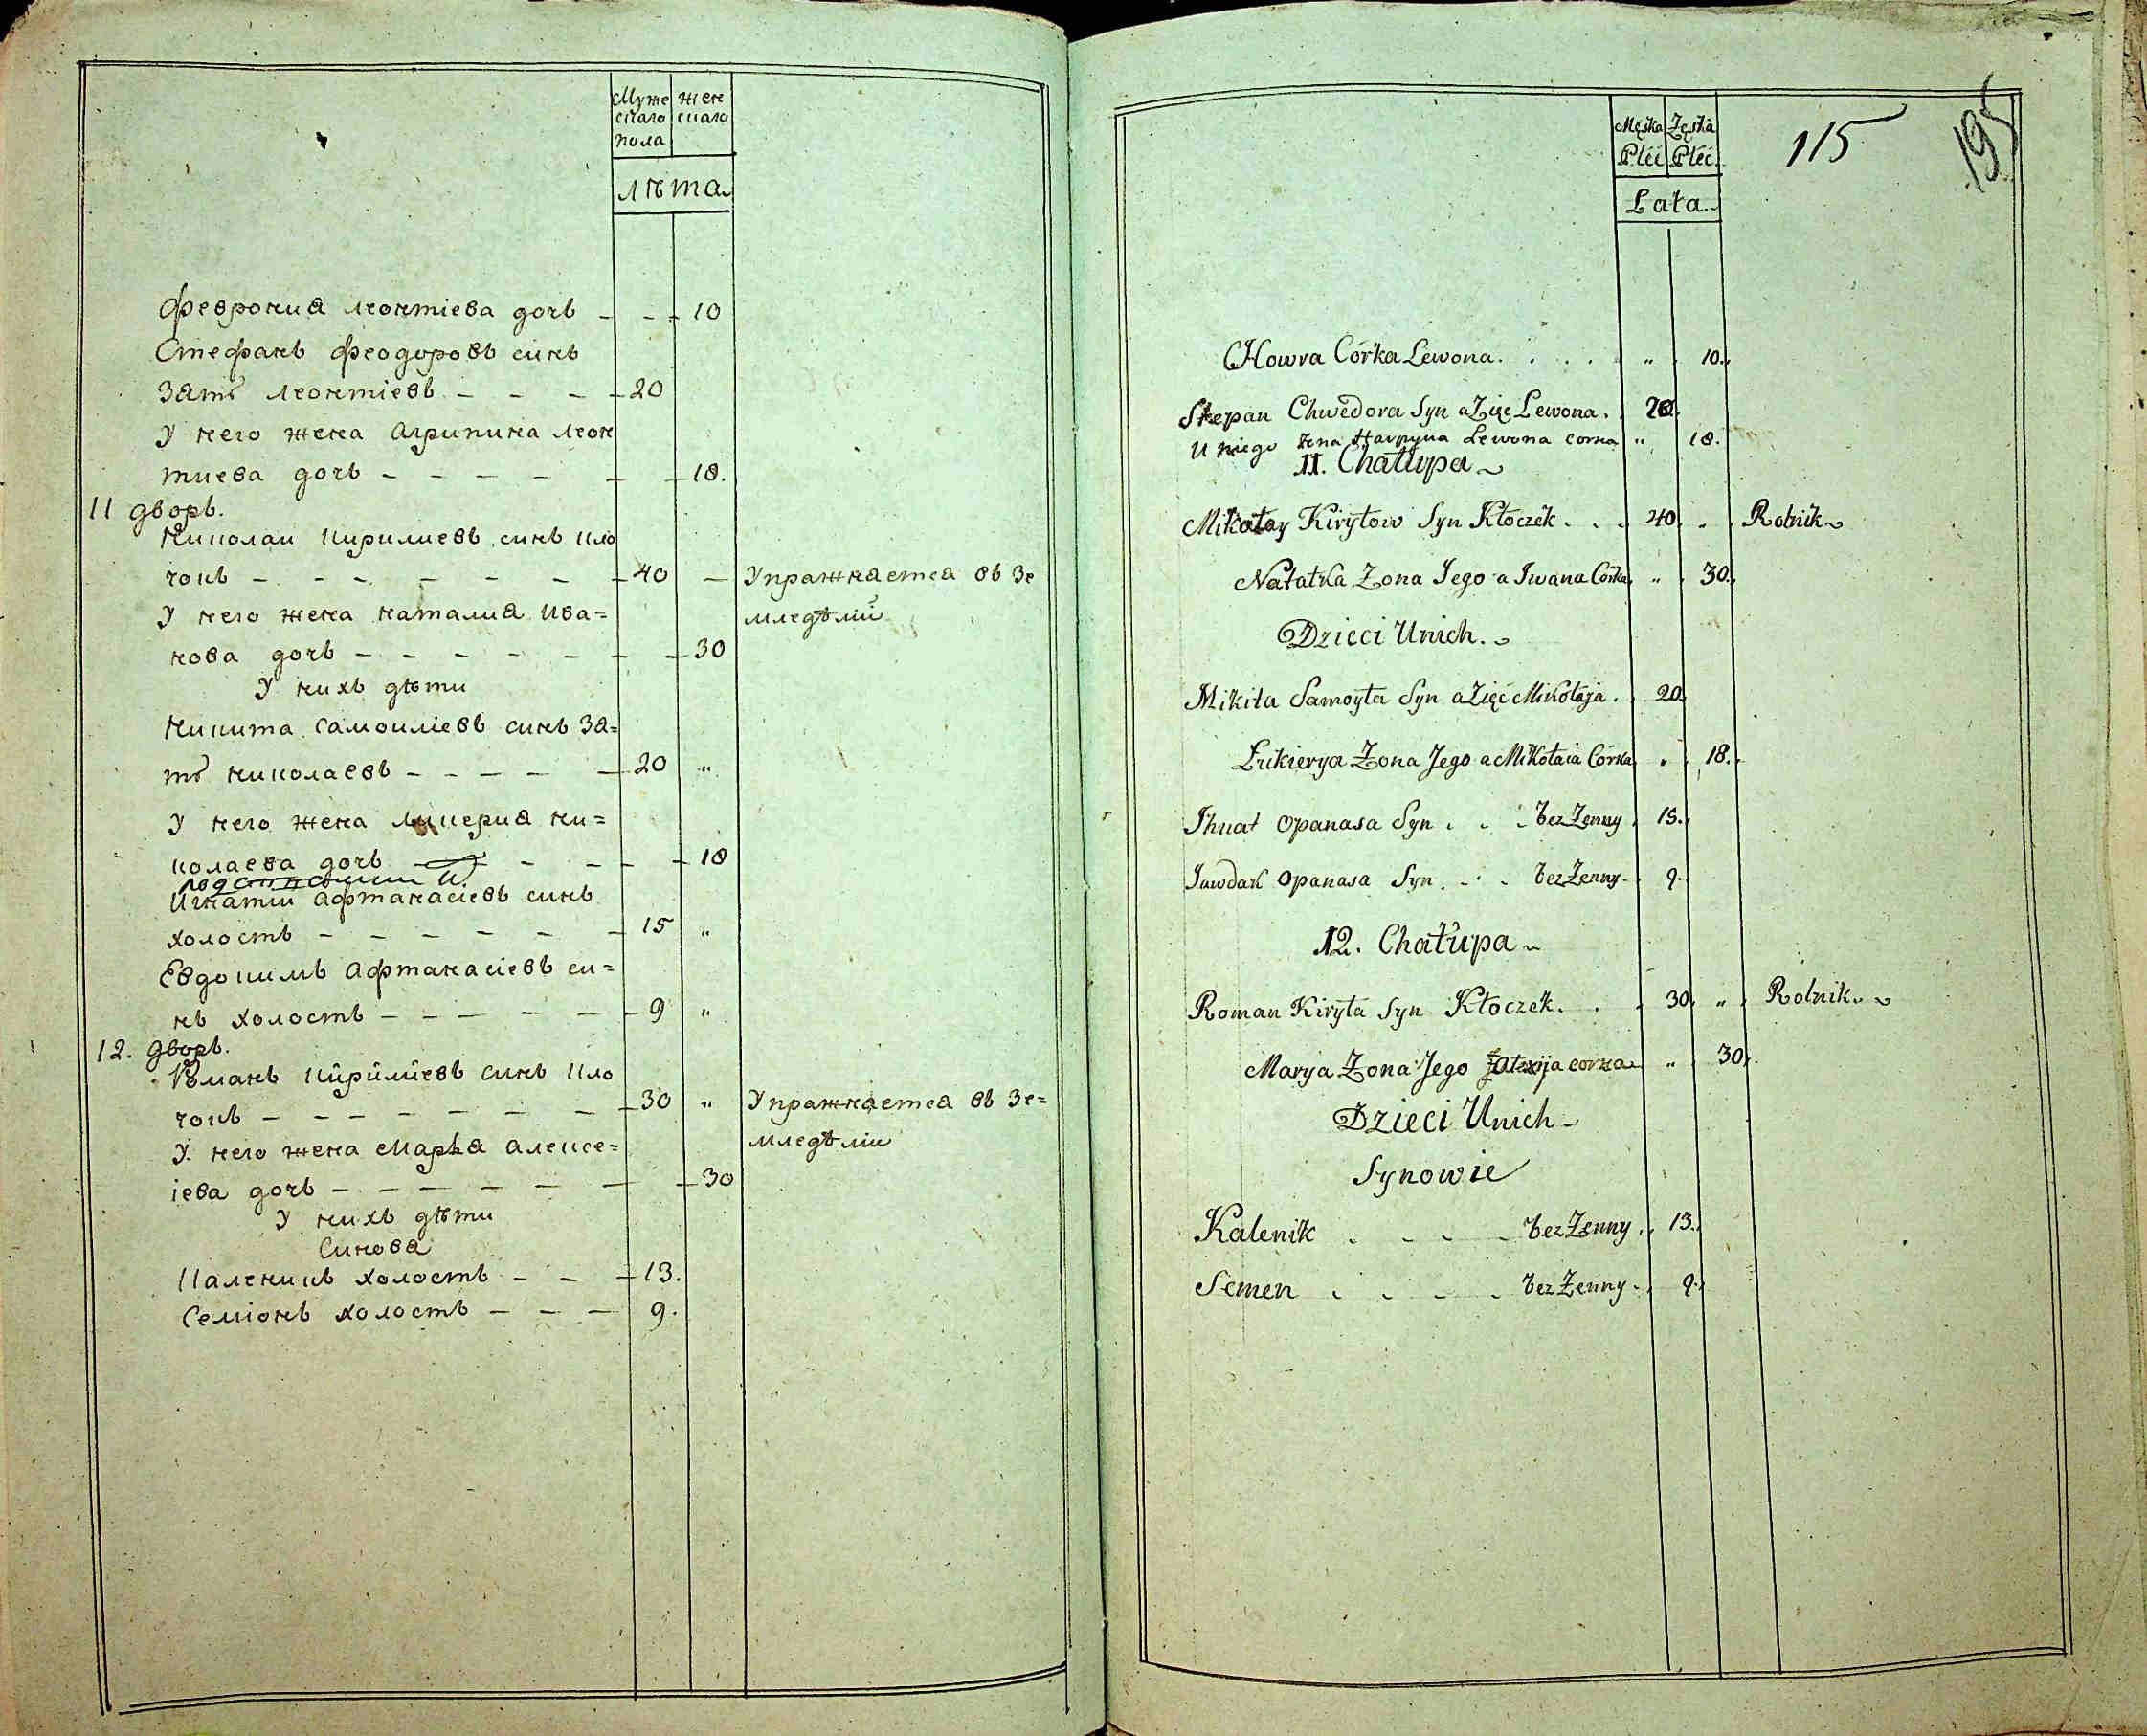 Муже
скаго
пола
жен
скаго
лѣта
Феврониа леонтіева дочь - - - 10
Стефанъ феодоровъ синъ
затъ леонтіевъ - - - 20
У него жена агрипина леон
тиева дочь - - - - - - 18.
11 дворъ.
Николаи кирилиевъ синъ кло
чокъ - - - - - - - 40 — Упражнаетса въ зе
У него жена наталиа ива= мледѣлиі
нова дочь - - - - - - - 30
У нихъ дѣти
Никита самоилиевъ синъ за=
тъ николаевъ - - - - - 20 „
У него жена ликериа ни=
колаева дочь - - - - 18
Игнатии афтанасіевъ синъ
холостъ - - - - - - - 15 „
Евдокимъ афтанасіевъ си=
нъ холостъ - - - - - - 9 „
12. дворъ.
Романъ кирилиевъ синъ кло
чокъ - - - - - - - - 30 „ Упражнаетса въ зе=
У него жена Марьа алексе= мледѣліи
іева дочь - - - - - - - 30
У нихъ дѣти
Синова
Каленикъ холостъ - - - 13.
Семіонъ холостъ - - - 9.
Męska
Płeć
Żęska
Płeć
115
195
Lata
Howra Córka Lewona. . . . . „ 10.
Stepan Chwedora Syn a Zięć Lewona. 20.
U niego żona Harpyna Lewona corka „ 18.
11. Chałupa
Mikołay Kiryłow Syn Kłoczek . . . 40. „ Rolnik
Natałka Zona Jego a Jwana Córka „ 30.
Dzieci Unich.
Mikita Samoyła Syn a Zięć Mikołaja. . 20.
Łukierya Zona Jego a Mikołaia Córka „ 18.
Jhnat Opanasa Syn . . . bezZenny . 15.
Jawdak Opanasa Syn . - . bezZenny - 9.
12. Chałupa
Roman Kiryła Syn Kłoczek. . . 30. „ Rolnik.
Marya Zona Jego Olexija corka „ 30.
Dzieci Unich
Synowie
Kalenik . - - - bezZenny . 13.
Semen . . . . bezZenny . 9.